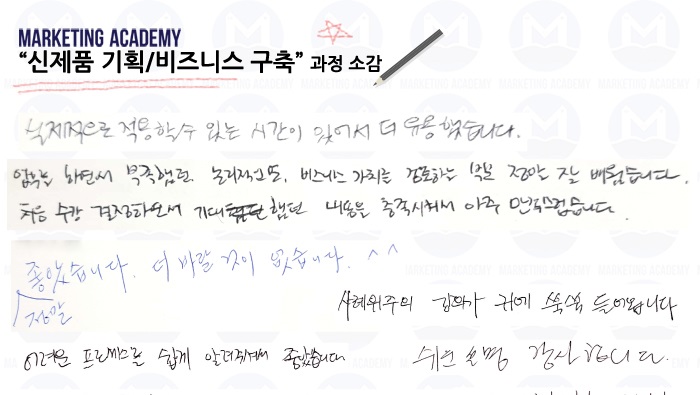 MARKETING ACADEMY
“신제품 기획/비즈니스 구축” 과정 소감
실제적으로 적용할수 있는 시간이 있어서 더 유용했습니다.
업무를 하면서 부족했던, 논리적사고, 비즈니스 가치를 검토하는 부분 정말 잘 배웠습니다.
처음 수강 결정하면서 기대했던 내용을 충족시켜서 아주 만족스럽습니다.
좋았습니다. 더 바랄 것이 없습니다. ^^
정말
사례위주의 강의가 귀에 쏙쏙 들어옵니다
어려운 프로세스를 쉽게 알려주셔서 좋았습니다.
쉬운 설명 감사합니다.